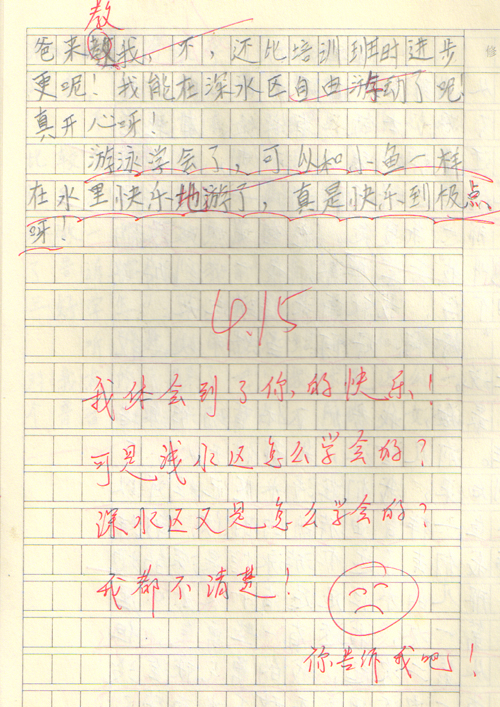 教
爸来教我，不，还比培训班时进步
更呢！我能在深水区自由游动了呢
真开心呀！
游泳学会了，可以和小鱼一样
在水里快乐地游了，真是快乐到极点
呀！
4.15
我体会到了你的快乐！
可是浅水区怎么学会的？
深水区又是怎么学会的？
我都不清楚！
你告诉我吧！